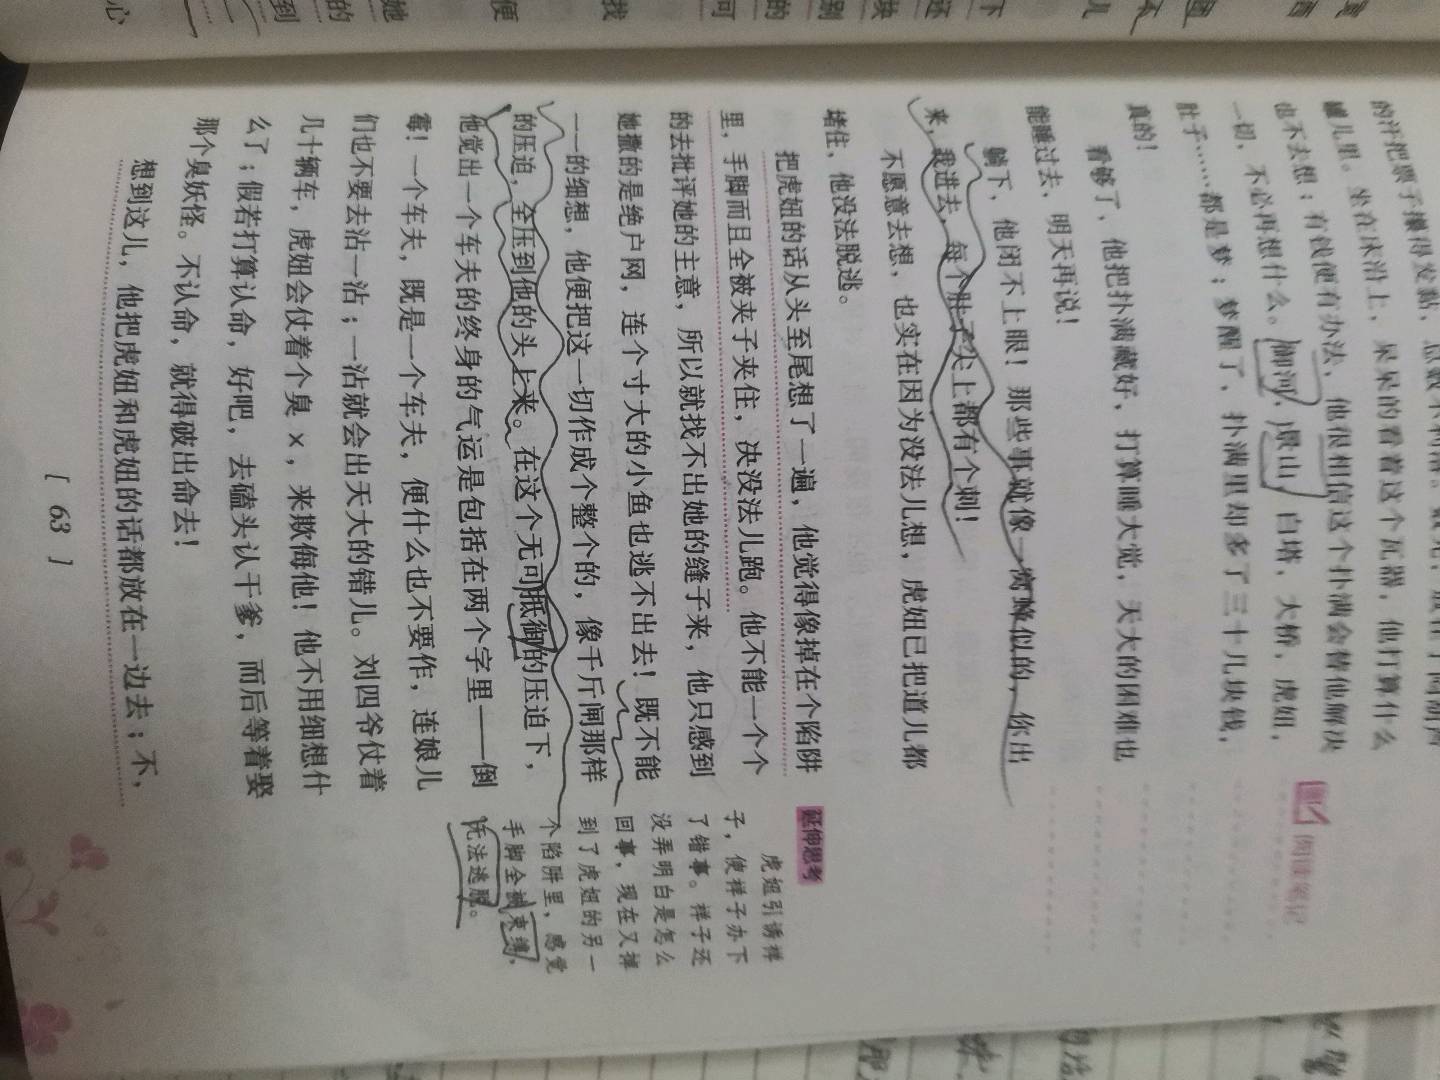 的汗把票子攥得发黏，总数不利落。数完，放在了闷葫芦
罐儿里。坐在床沿上，呆呆的看着这个瓦器，他打算什么
也不去想；有钱便有办法，他很相信这个扑满会替他解决
一切，不必再想什么。御河，景山，白塔，大桥，虎妞，
肚子……都是梦；梦醒了，扑满里却多了三十几块钱，
真的！
看够了，他把扑满藏好，打算睡大觉，天大的困难也
能睡过去，明天再说！
躺下，他闭不上眼！那些事就像一窝蜂似的，你出
来，我进去，每个肚子尖上都有个刺！
不愿意去想，也实在因为没法儿想，虎妞已把道儿都
堵住，他没法脱逃。
把虎妞的话从头至尾想了一遍，他觉得像掉在个陷阱
里，手脚而且全被夹子夹住，决没法儿跑。他不能一个个
的去批评她的主意，所以就找不出她的缝子来，他只感到
她撒的是绝户网，连个寸大的小鱼也逃不出去！既不能
一一的细想，他便把这一切作成个整个的，像千斤闸那样
的压迫，全压到他的头上来。在这个无可抵御的压迫下，
他觉出一个车夫的终身的气运是包括在两个字里——倒
霉！一个车夫，既是一个车夫，便什么也不要作，连娘儿
们也不要去沾一沾；一沾就会出天大的错儿。刘四爷仗着
几十辆车，虎妞会仗着个臭×，来欺侮他！他不用细想什
么了；假若打算认命，好吧，去磕头认干爹，而后等着娶
那个臭妖怪。不认命，就得破出命去！
想到这儿，他把虎妞和虎妞的话都放在一边去；不，
阅读笔记
延伸思考
虎妞引诱祥
子，使祥子办下
了错事。祥子还
没弄明白是怎么
回事，现在又掉
到了虎妞的另一
个陷阱里，感觉
手脚全被束缚，
无法逃脱。
[ 63 ]